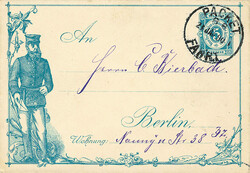 PACKET
FAHRT
An
Herrn C. Bierbach.
Berlin.
Wohnung Naunyn Str. 38